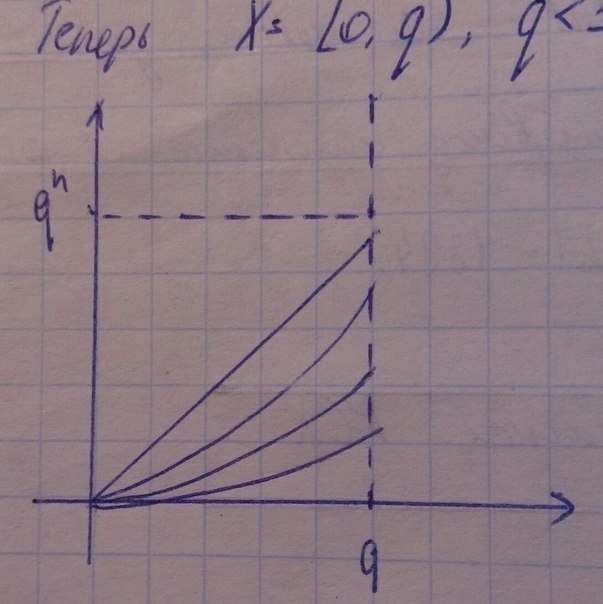 Теперь X = [0, q), q < 1
qⁿ
q